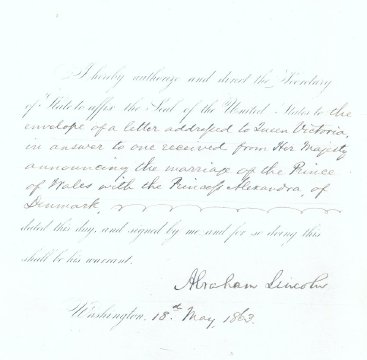 I hereby authorize and direct the Secretary
of State to affix the Seal of the United States to the
envelope of a letter addressed to Queen Victoria,
in answer to one received from Her Majesty
announcing the marriage of the Prince
of Wales with the Princess Alexandra, of
Denmark,
dated this day, and signed by me, and for so doing this
shall be his warrant.
Abraham Lincoln
Washington, 18th May, 1863.